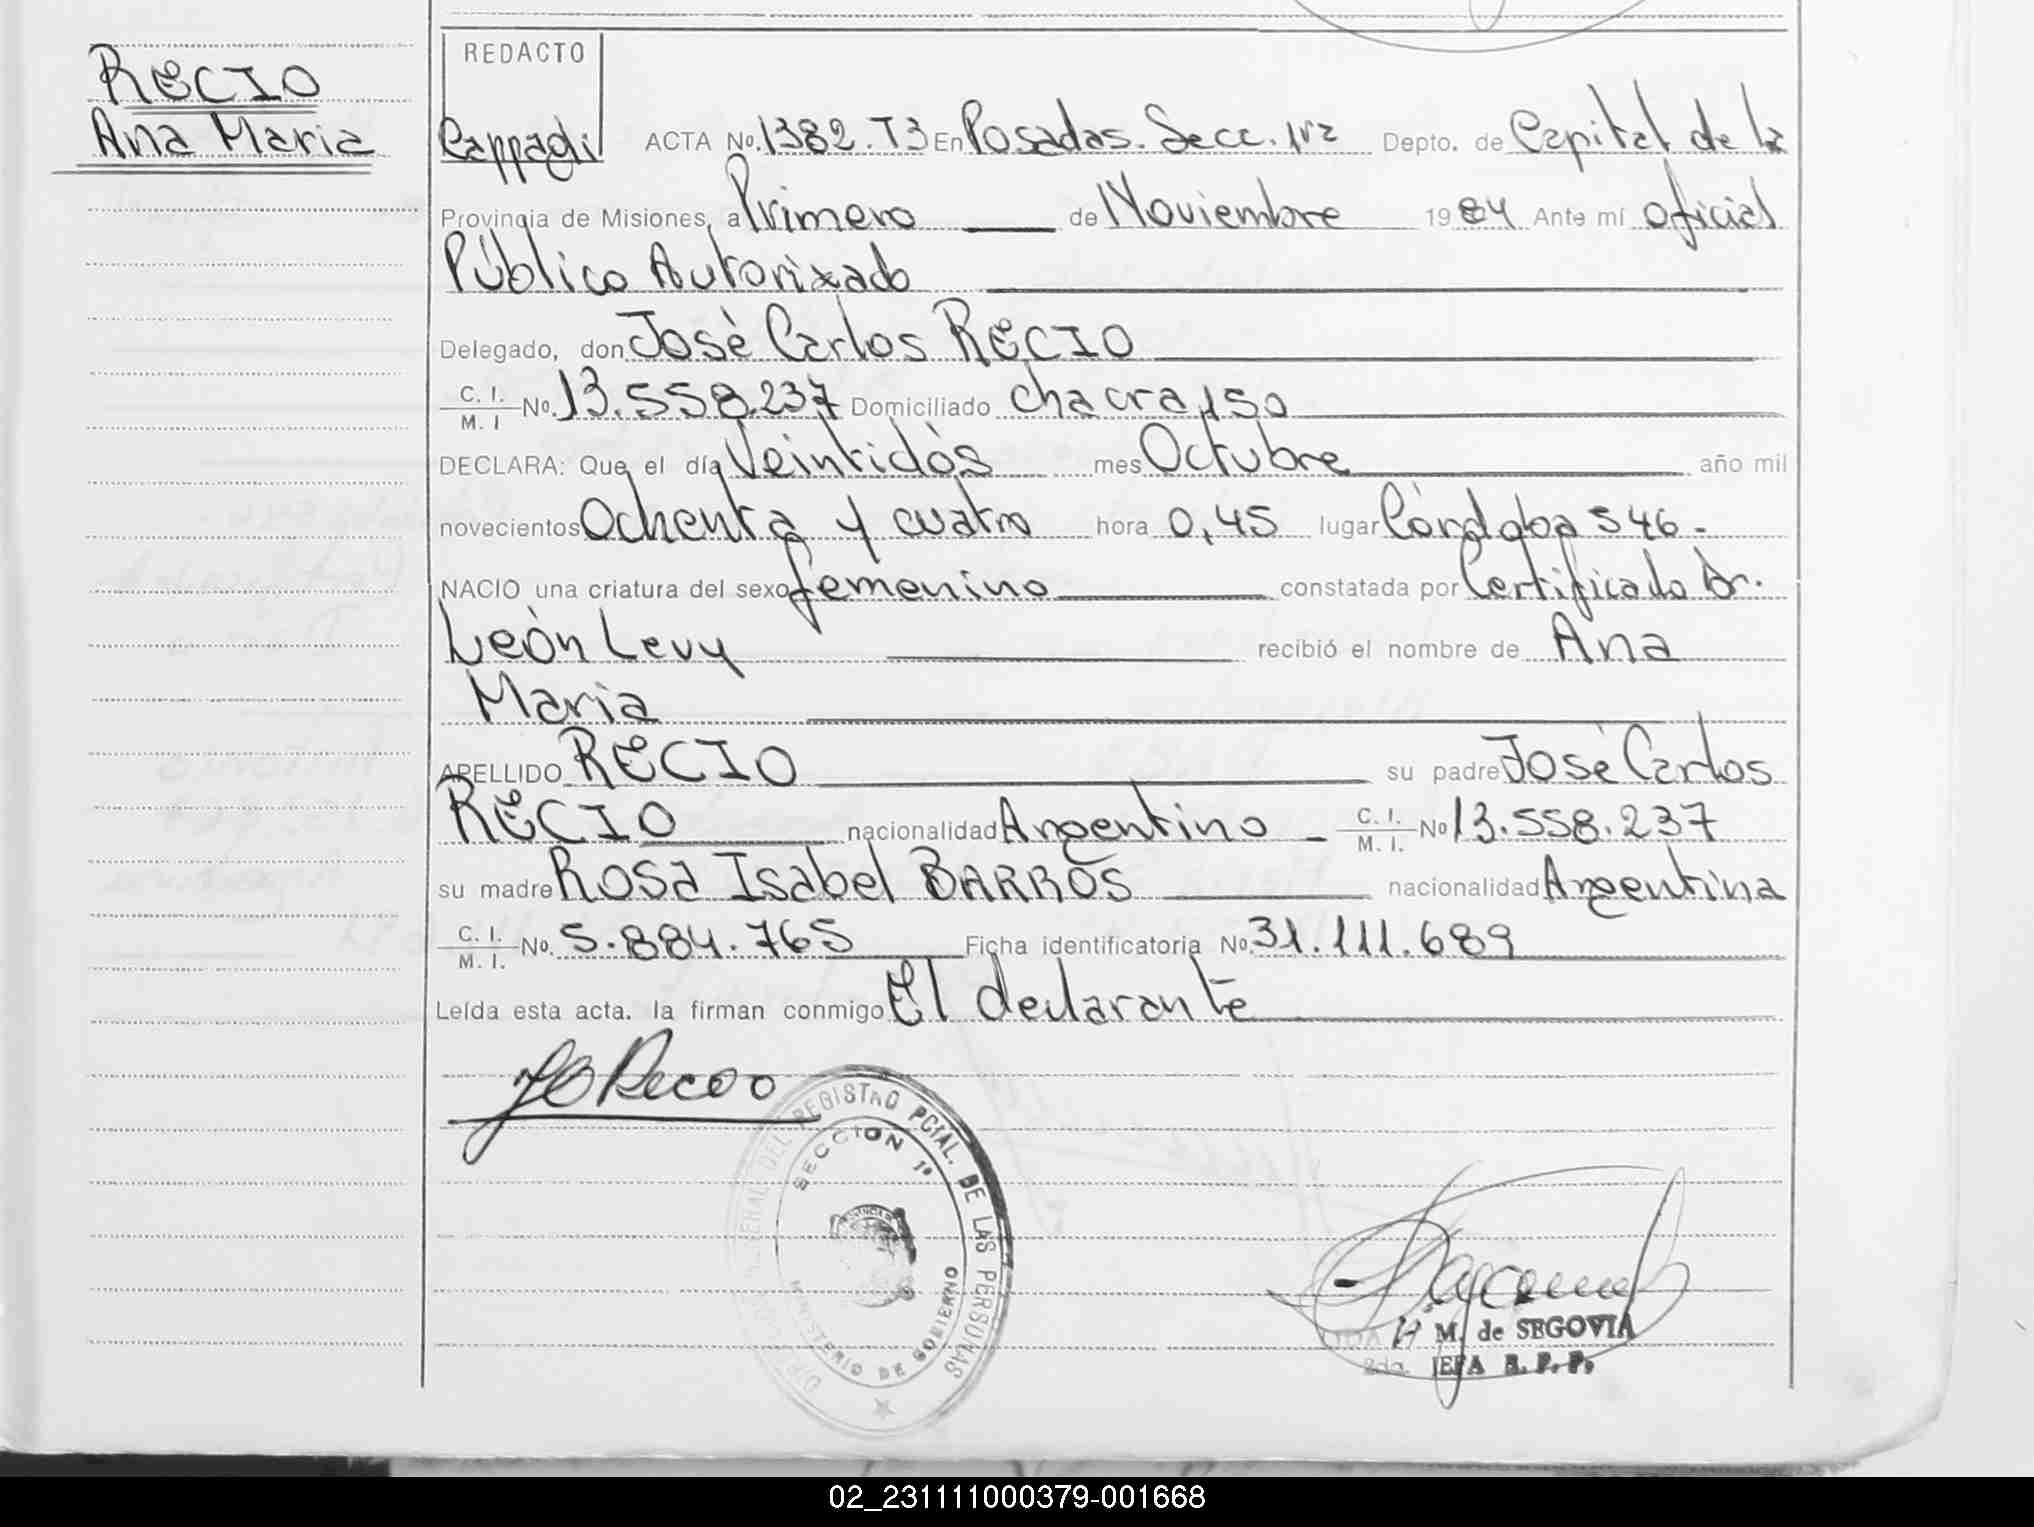 RECIO
Ana Maria
REDACTO
Cappagli
ACTA No. 1382. T3 En Posadas. Secc. 1ra Depto. de Capital de la
Provincia de Misiones, a Primero de Noviembre 1984 Ante mí Oficial
Público Autorizado
Delegado, don José Carlos RECIO
C. I.
M. I No. 13.558.237 Domiciliado chacra 150
DECLARA: Que el día Veintidós mes Octubre año mil
novecientos Ochenta y cuatro hora 0,45 lugar Córdoba 546.-
NACIO una criatura del sexo femenino constatada por Certificado Dr.
León Levy recibió el nombre de Ana
Maria
APELLIDO RECIO su padre José Carlos
RECIO nacionalidad Argentino - C. I.
M. I. No 13.558.237
su madre Rosa Isabel BARROS nacionalidad Argentina
C. I.
M. I. No. 5.884.765 Ficha identificatoria No. 31.111.689
Leída esta acta. la firman conmigo El declarante
REGISTRO PCIAL. DE LAS PERSONAS
SECCION 1ª
MINISTERIO DE GOBIERNO
M. de SEGOVIA
2da. JEFA R. P. P.
02_231111000379-001668